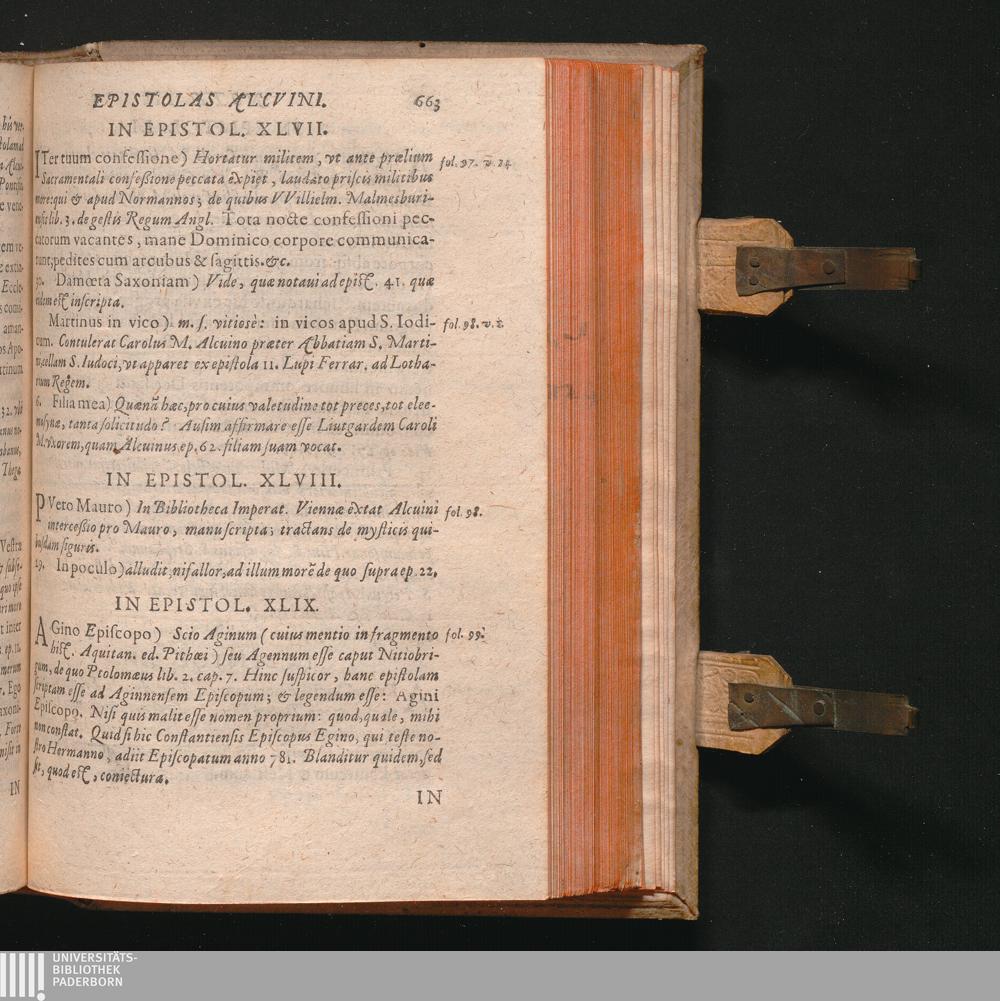 EPISTOLAS ALCVINI. 663
IN EPISTOL. XLVII.
ITer tuum confessione) Hortatur militem, vt ante prælium fol. 97. v. 24.
Sacramentali confeßione peccata expiet, laudato priscis militibus
more: qui & apud Normannos; de quibus VVillielm. Malmesburi-
ensis lib. 3. de gestis Regum Angl. Tota nocte confessioni pec-
catorum vacantes, mane Dominico corpore communica-
runt, pedites cum arcubus & sagittis. &c.
Damœta Saxoniam) Vide, quæ notaui ad epist. 41. quæ
eidem est inscripta.
Martinus in vico) m. s. vitiosè: in vicos apud S. Iodi- fol. 98. v. 1.
cum. Contulerat Carolus M. Alcuino præter Abbatiam S. Marti-
ni, cellam S. Iudoci, vt apparet ex epistola 11. Lupi Ferrar. ad Lotha-
rium Regem.
6. Filia mea) Quænā hæc, pro cuius valetudine tot preces, tot elee-
mosynæ, tanta solicitudo? Ausim affirmare esse Liutgardem Caroli
M. vxorem, quam Alcuinus ep. 62. filiam suam vocat.
IN EPISTOL. XLVIII.
PVero Mauro) In Bibliotheca Imperat. Viennæ extat Alcuini fol. 98.
interceßio pro Mauro, manuscripta; tractans de mysticis qui-
busdam figuris.
19. In poculo) alludit, ni fallor, ad illum morē de quo supra ep. 22.
IN EPISTOL. XLIX.
AGino Episcopo) Scio Aginum (cuius mentio in fragmento fol. 99.
hist. Aquitan. ed. Pithœi) seu Agennum esse caput Nitiobri-
gum, de quo Ptolomæus lib. 2. cap. 7. Hinc suspicor, hanc epistolam
scriptam esse ad Aginnensem Episcopum; & legendum esse: Agini
Episcopo. Nisi quis malit esse nomen proprium: quod, quale, mihi
non constat. Quid si hic Constantiensis Episcopus Egino, qui teste no-
stro Hermanno, adiit Episcopatum anno 781. Blanditur quidem, sed
sit, quod est, coniectura.
IN
his ve-
Alcu-
Pontifi
e vene-
Eccle-
s com-
aman-
os Apo-
rtinum
32. vbi
Vestra
quo ipse
t inter
ep. 11.
merum
Ego
axoni-
Forte
IN
UNIVERSITÄTS-
BIBLIOTHEK
PADERBORN